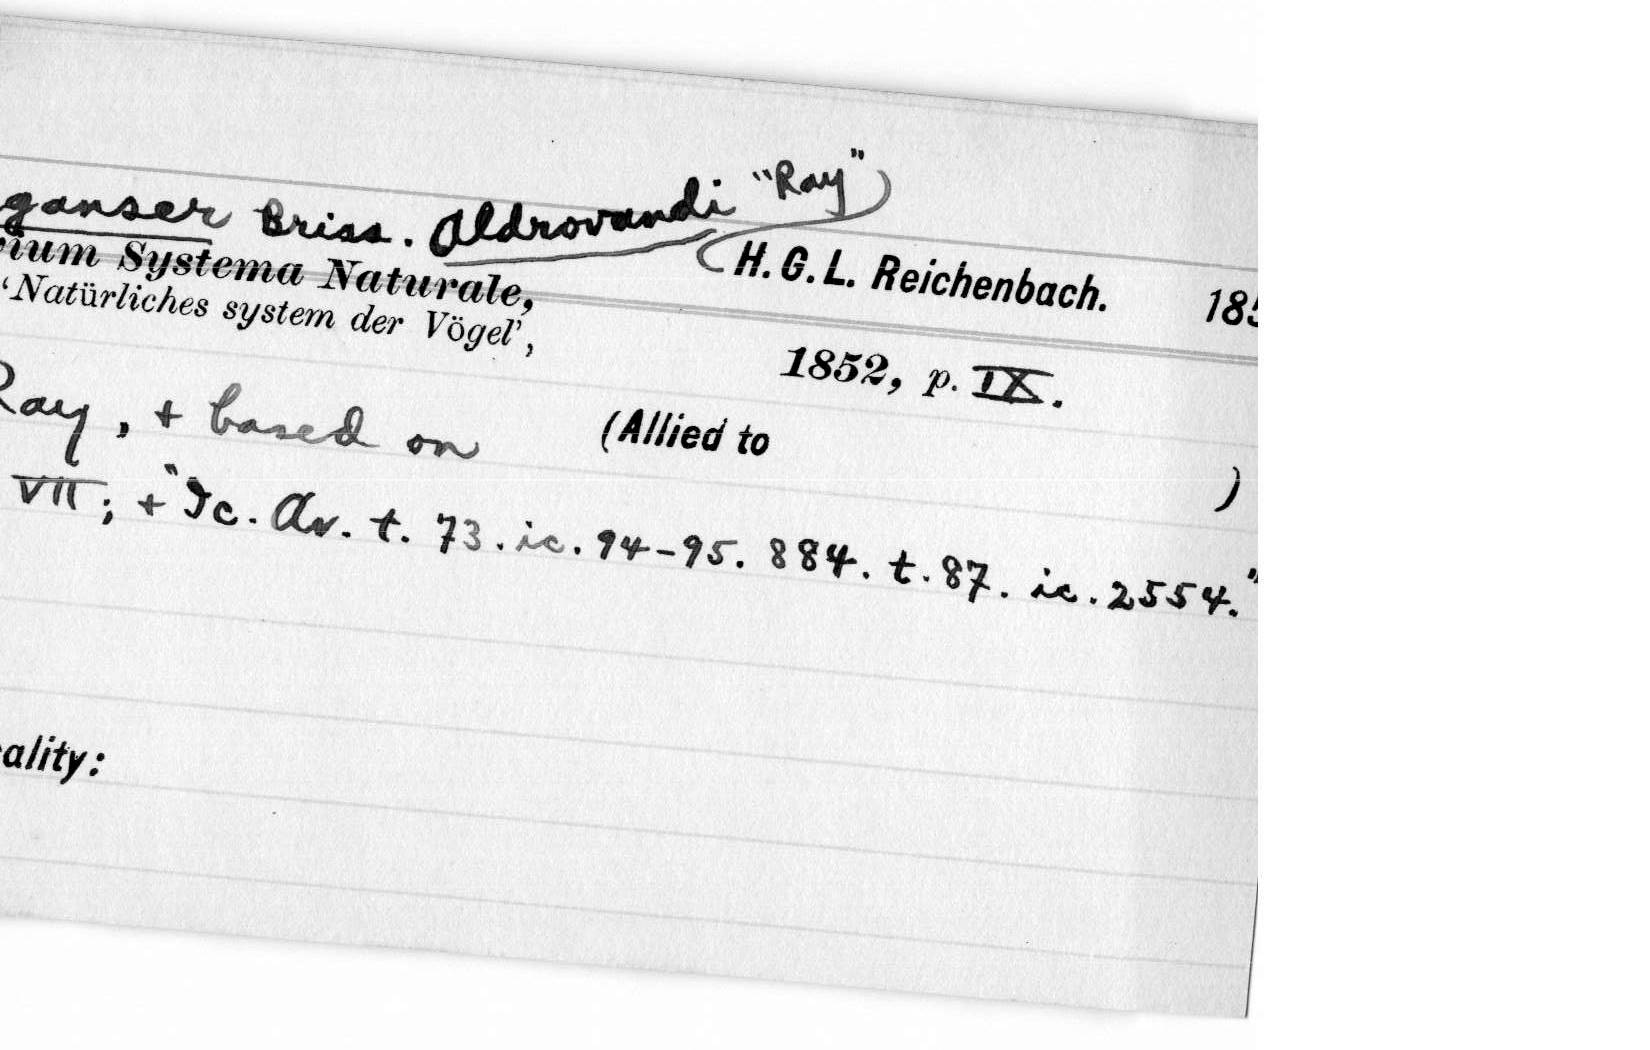 ganser Briss. Aldrovandi "Ray"
H. G. L. Reichenbach. 185
ium Systema Naturale,
'Natürliches system der Vögel',
1852, p. IX.
Ray, + based on (Allied to )
VII; + "Ic. Av. t. 73. ic. 94-95. 884. t. 87. ic. 2554."
ality: